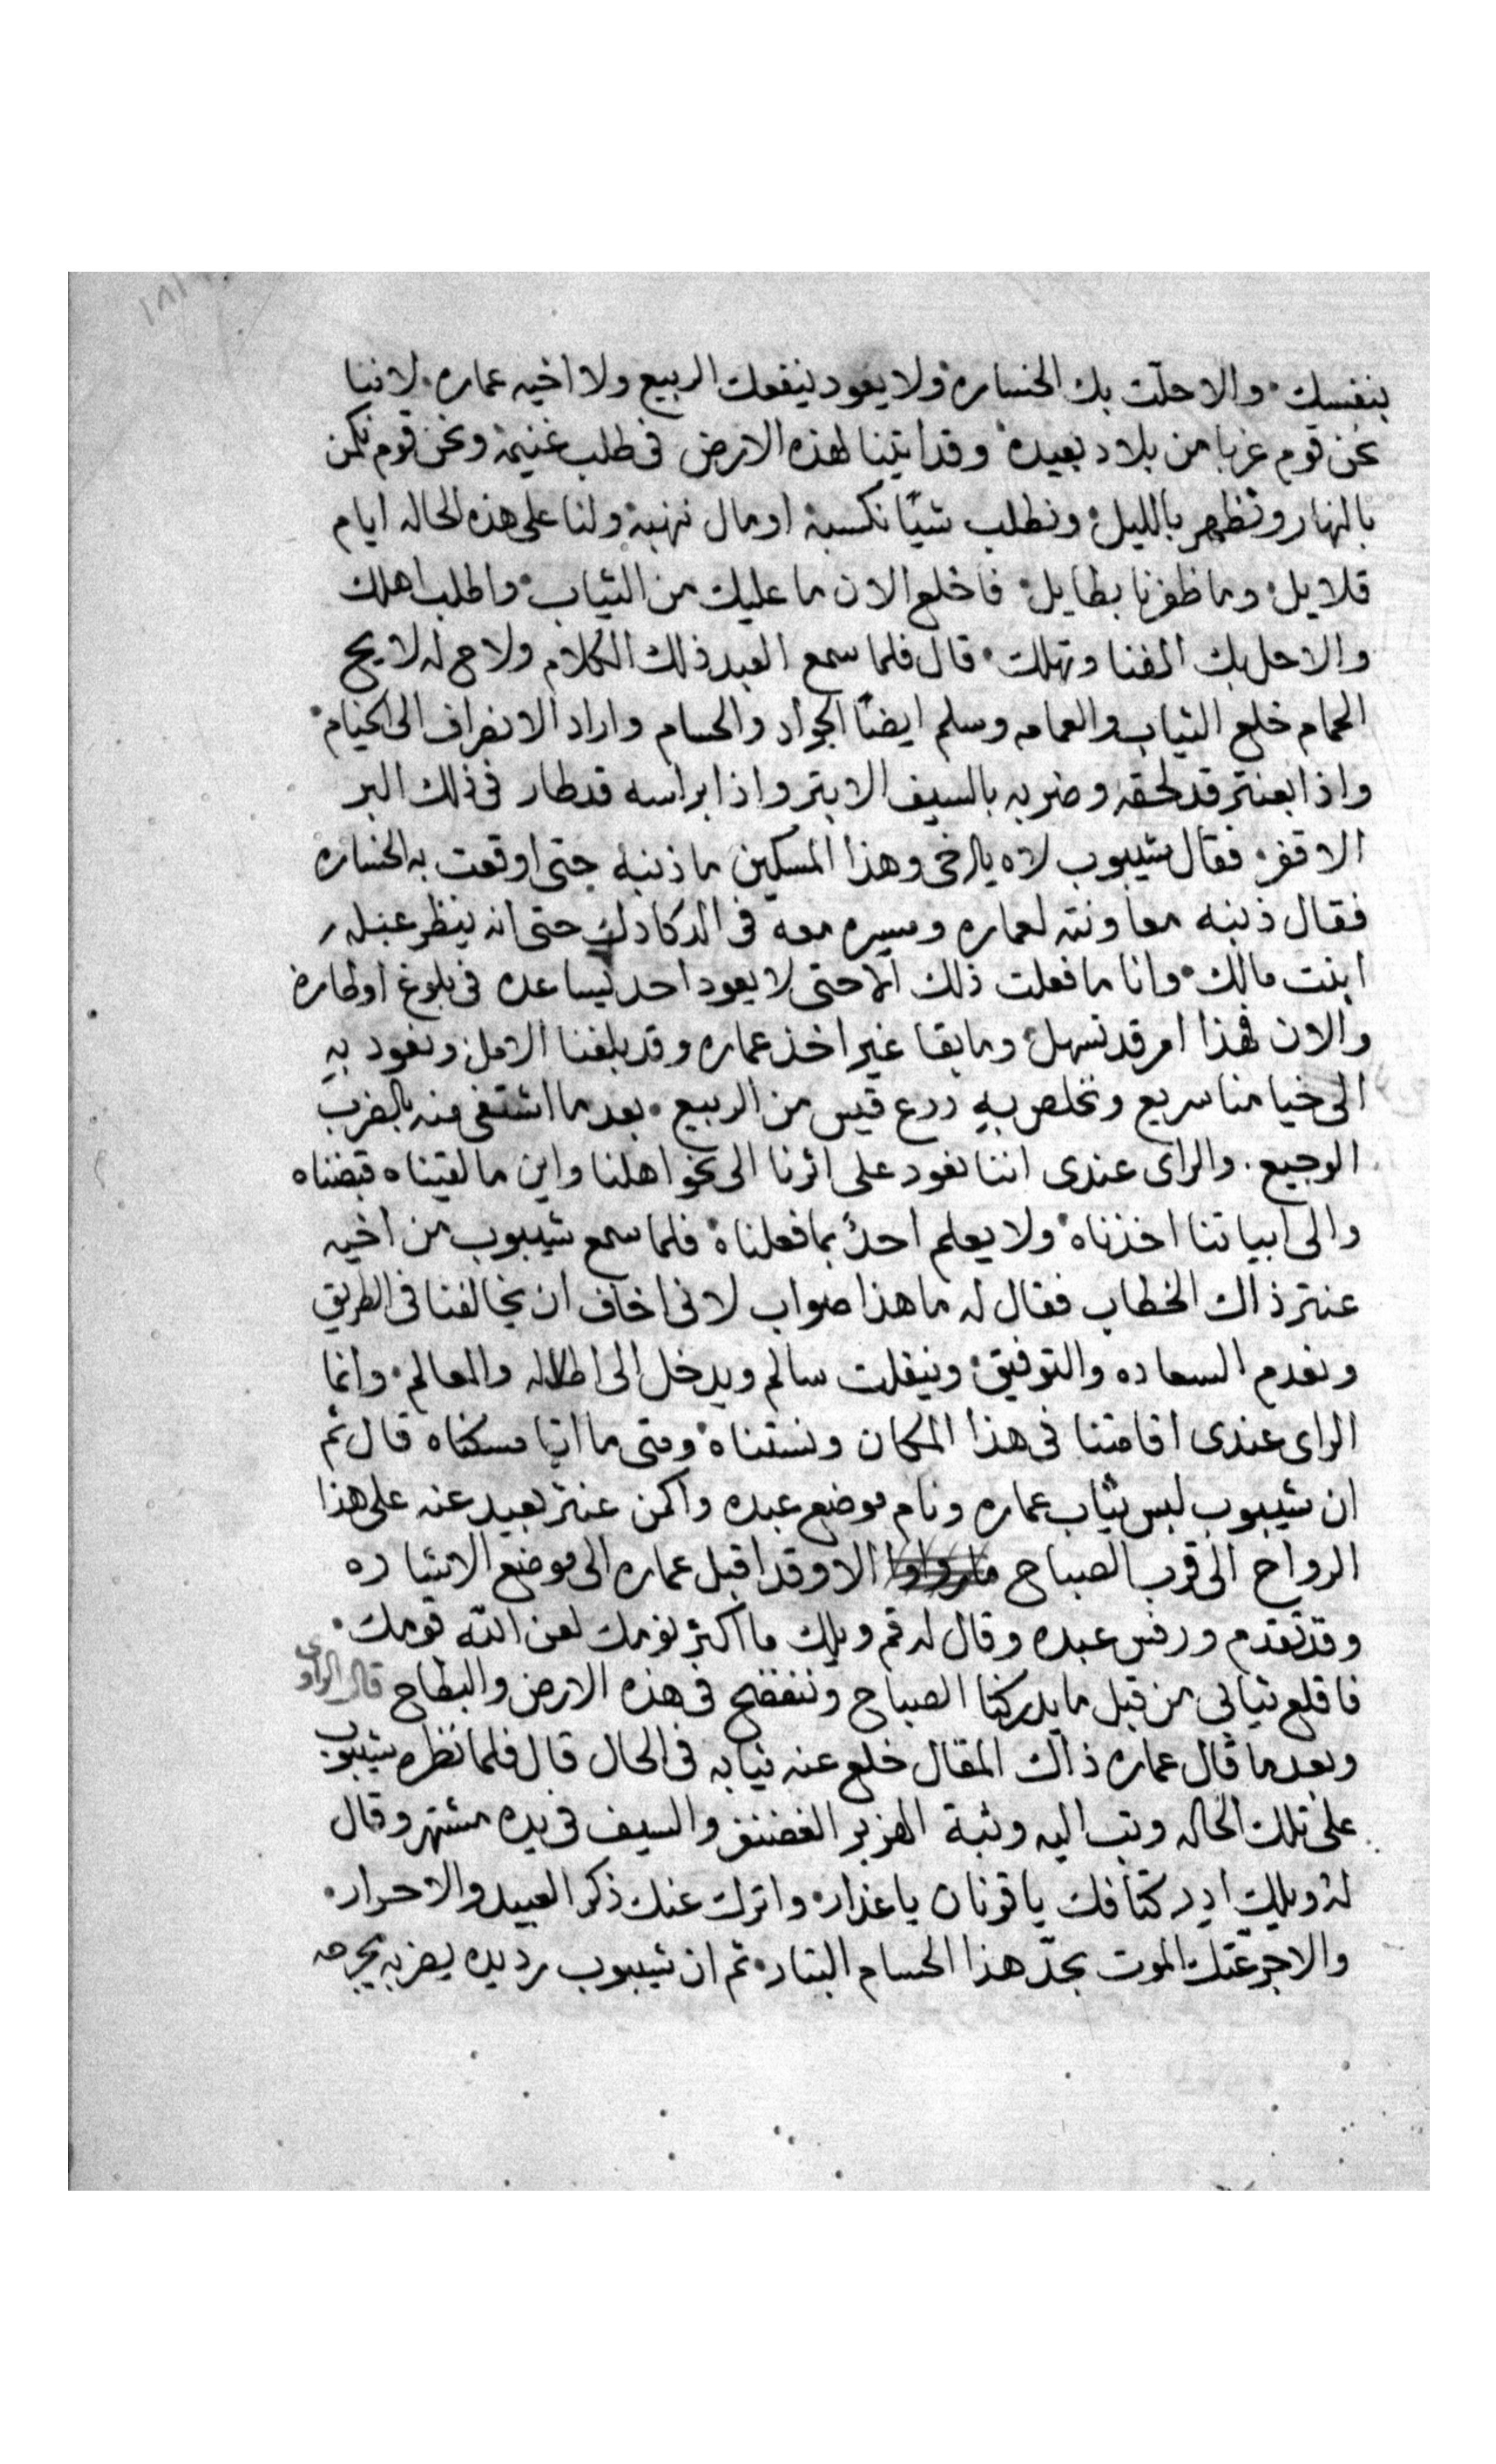 بنفسك والا حلّت بك الخساره ولا يعود ينفعك الربيع ولا اخيه عماره لاننا
نحن قوم غربا من بلاد بعيده وقد اتينا لهذه الارض فى طلب غنيمة ونحن قوم نكمن
بالنهار ونظهر بالليل ونطلب شيًا نكسبة او مال ننهبة ولنا على هذه الحاله ايام
قلايل وما ظفرنا بطايل فاخلع الان ما عليك من الثياب واطلب اهلك
والا حل بك الفنا وتهلك قال فلما سمع العبد ذلك الكلام ولاح له لايح
الحمام خلع الثياب والعمامه وسلم ايضًا الجواد والحسام واراد الانصراف الى الخيام
واذا بعنتر قد لحقه وضربه بالسيف الابتر واذا براسه قد طار فى ذلك البر
الاقفر فقال شيبوب لاه يا اخى وهذا المسكين ما ذنبه حتى اوقعت به الخساره
فقال ذنبه معاونته لعماره ومسيره معه فى الدكادك حتى انه ينظر عبله
ابنت مالك وانا ما فعلت ذلك الا حتى لا يعود احد يساعده فى بلوغ اوطاره
والان فهذا امر قد تسهل وما بقا غير اخذ عماره وقد بلغنا الامل ونعود به
الى خيامنا سريع ونخلص به درع قيس من الربيع بعد ما اشتفى منه بالضرب
الوجيع والراى عندى اننا نعود على اثرنا الى نحو اهلنا واين ما لقيناه قبضناه
والى ابياتنا اخذناه ولا يعلم احدٌ بما فعلناه فلما سمع شيبوب من اخيه
عنتر ذاك الخطاب فقال له ما هذا صواب لانى اخاف ان يخالفنا فى الطريق
ونعدم السعاده والتوفيق وينفلت سالم ويدخل الى اطلاله والمعالم وانما
الراى عندى اقامتنا فى هذا المكان ونستناه ومتى ما اتيا مسكناه قال ثم
ان شيبوب لبس ثياب عماره ونام موضع عبده واكمن عنتر بعيد عنه على هذا
الرواح الى قرب الصباح الا وقد اقبل عماره الى موضع الاشاره
وقد تقدم ورفس عبده وقال له قم ويلك ما اكثر نومك لعن الله قومك
فاقلع ثيابى من قبل ما يدركنا الصباح وننفضح فى هذه الارض والبطاح قال الراوى
وبعد ما قال عماره ذاك المقال خلع عنه ثيابه فى الحال قال فلما نظره شيبوب
على تلك الحاله وثب اليه وثبة الهزبر الغضنفر والسيف فى يده مشتهر وقال
له ويلك ادر كتافك يا قرنان يا غدار واترك عنك ذكر العبيد والاحرار
والا جرعتك الموت بحدّ هذا الحسام البتار ثم ان شيبوب رد يده يضربه يجرحه